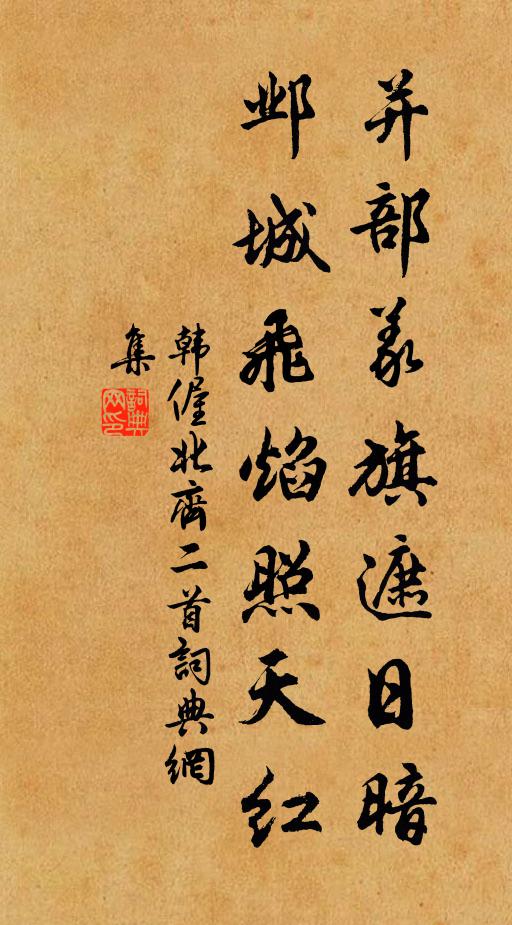 并部義旗遮日暗
邺城飛焰照天紅
韩偓北齊二首詞典網
集
詞典
网印